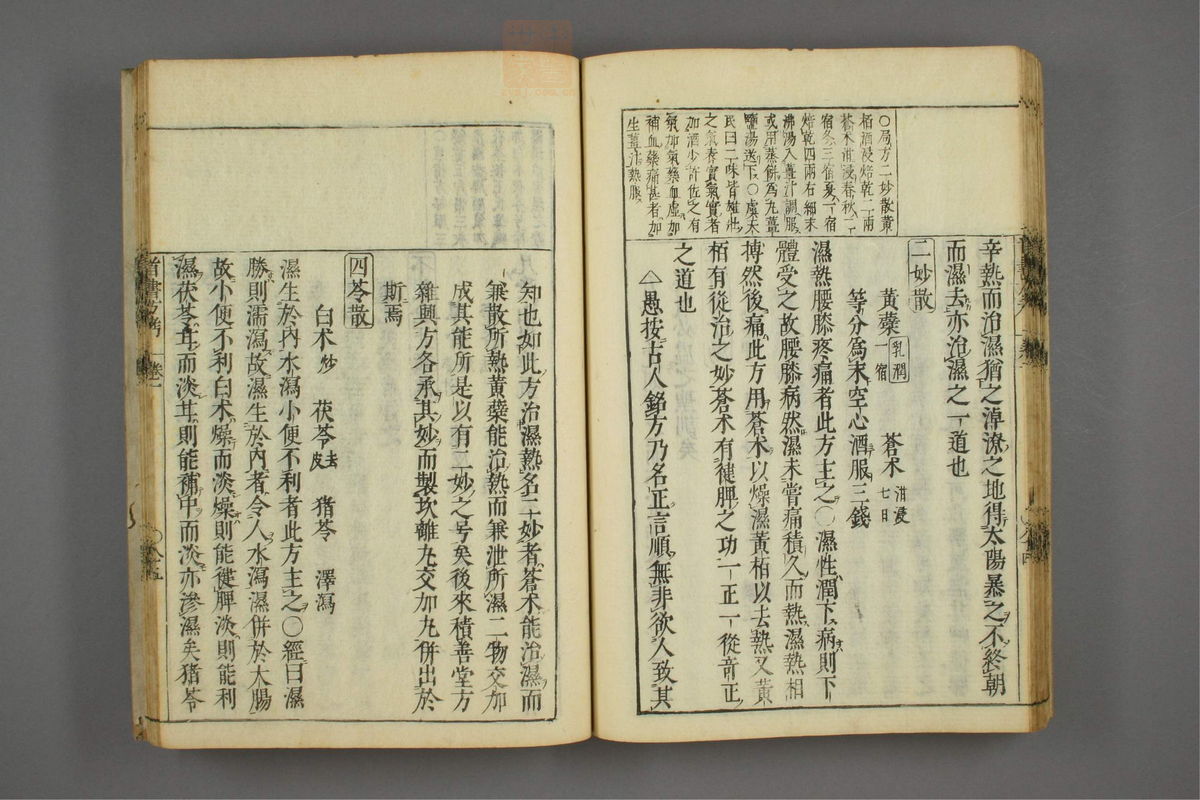 ○局方二妙散黃
栢酒浸焙乾二兩
蒼术泔浸春秋二
宿冬三宿夏一宿
焙乾四兩右細末
沸湯入薑汁調服
或用蒸餅為丸薑
鹽湯送下○虞天
民曰二味皆雄壯
之氣春實氣實者
加酒少許佐之有
氣加氣藥血虛加
補血藥痛甚者加
生薑汁熱服
辛熱而治濕猶之淖潦之地得太陽暴之不終朝
而濕去亦治濕之一道也
二妙散
黃蘗 乳潤一宿 蒼术 泔浸七日
等分為末空心酒服三錢
濕熱腰膝疼痛者此方主之○濕性潤下病則下
體受之故腰膝病然濕未嘗痛積久而熱濕熱相
搏然後痛此方用蒼术以燥濕黃栢以去熱又黃
栢有從治之妙蒼术有健脾之功一正一從奇正
之道也
△愚按古人銘方乃名正言順無非欲人致其
知也如此方治濕熱名二妙者蒼术能治濕而
兼散所熱黃蘗能治熱而兼泄所濕二物交加
成其能所是以有二妙之号矣後來積善堂方
雜興方各承其妙而製坎離丸交加丸併出於
斯焉
四苓散
白术炒 茯苓去皮 猪苓 澤瀉
濕生於內水瀉小便不利者此方主之○經曰濕
勝則濡瀉故濕生於內者令人水瀉濕併於大腸
故小便不利白术燥而淡燥則能健脾淡則能利
濕茯苓甘而淡甘則能補中而淡亦滲濕矣猪苓
首書方考 卷一